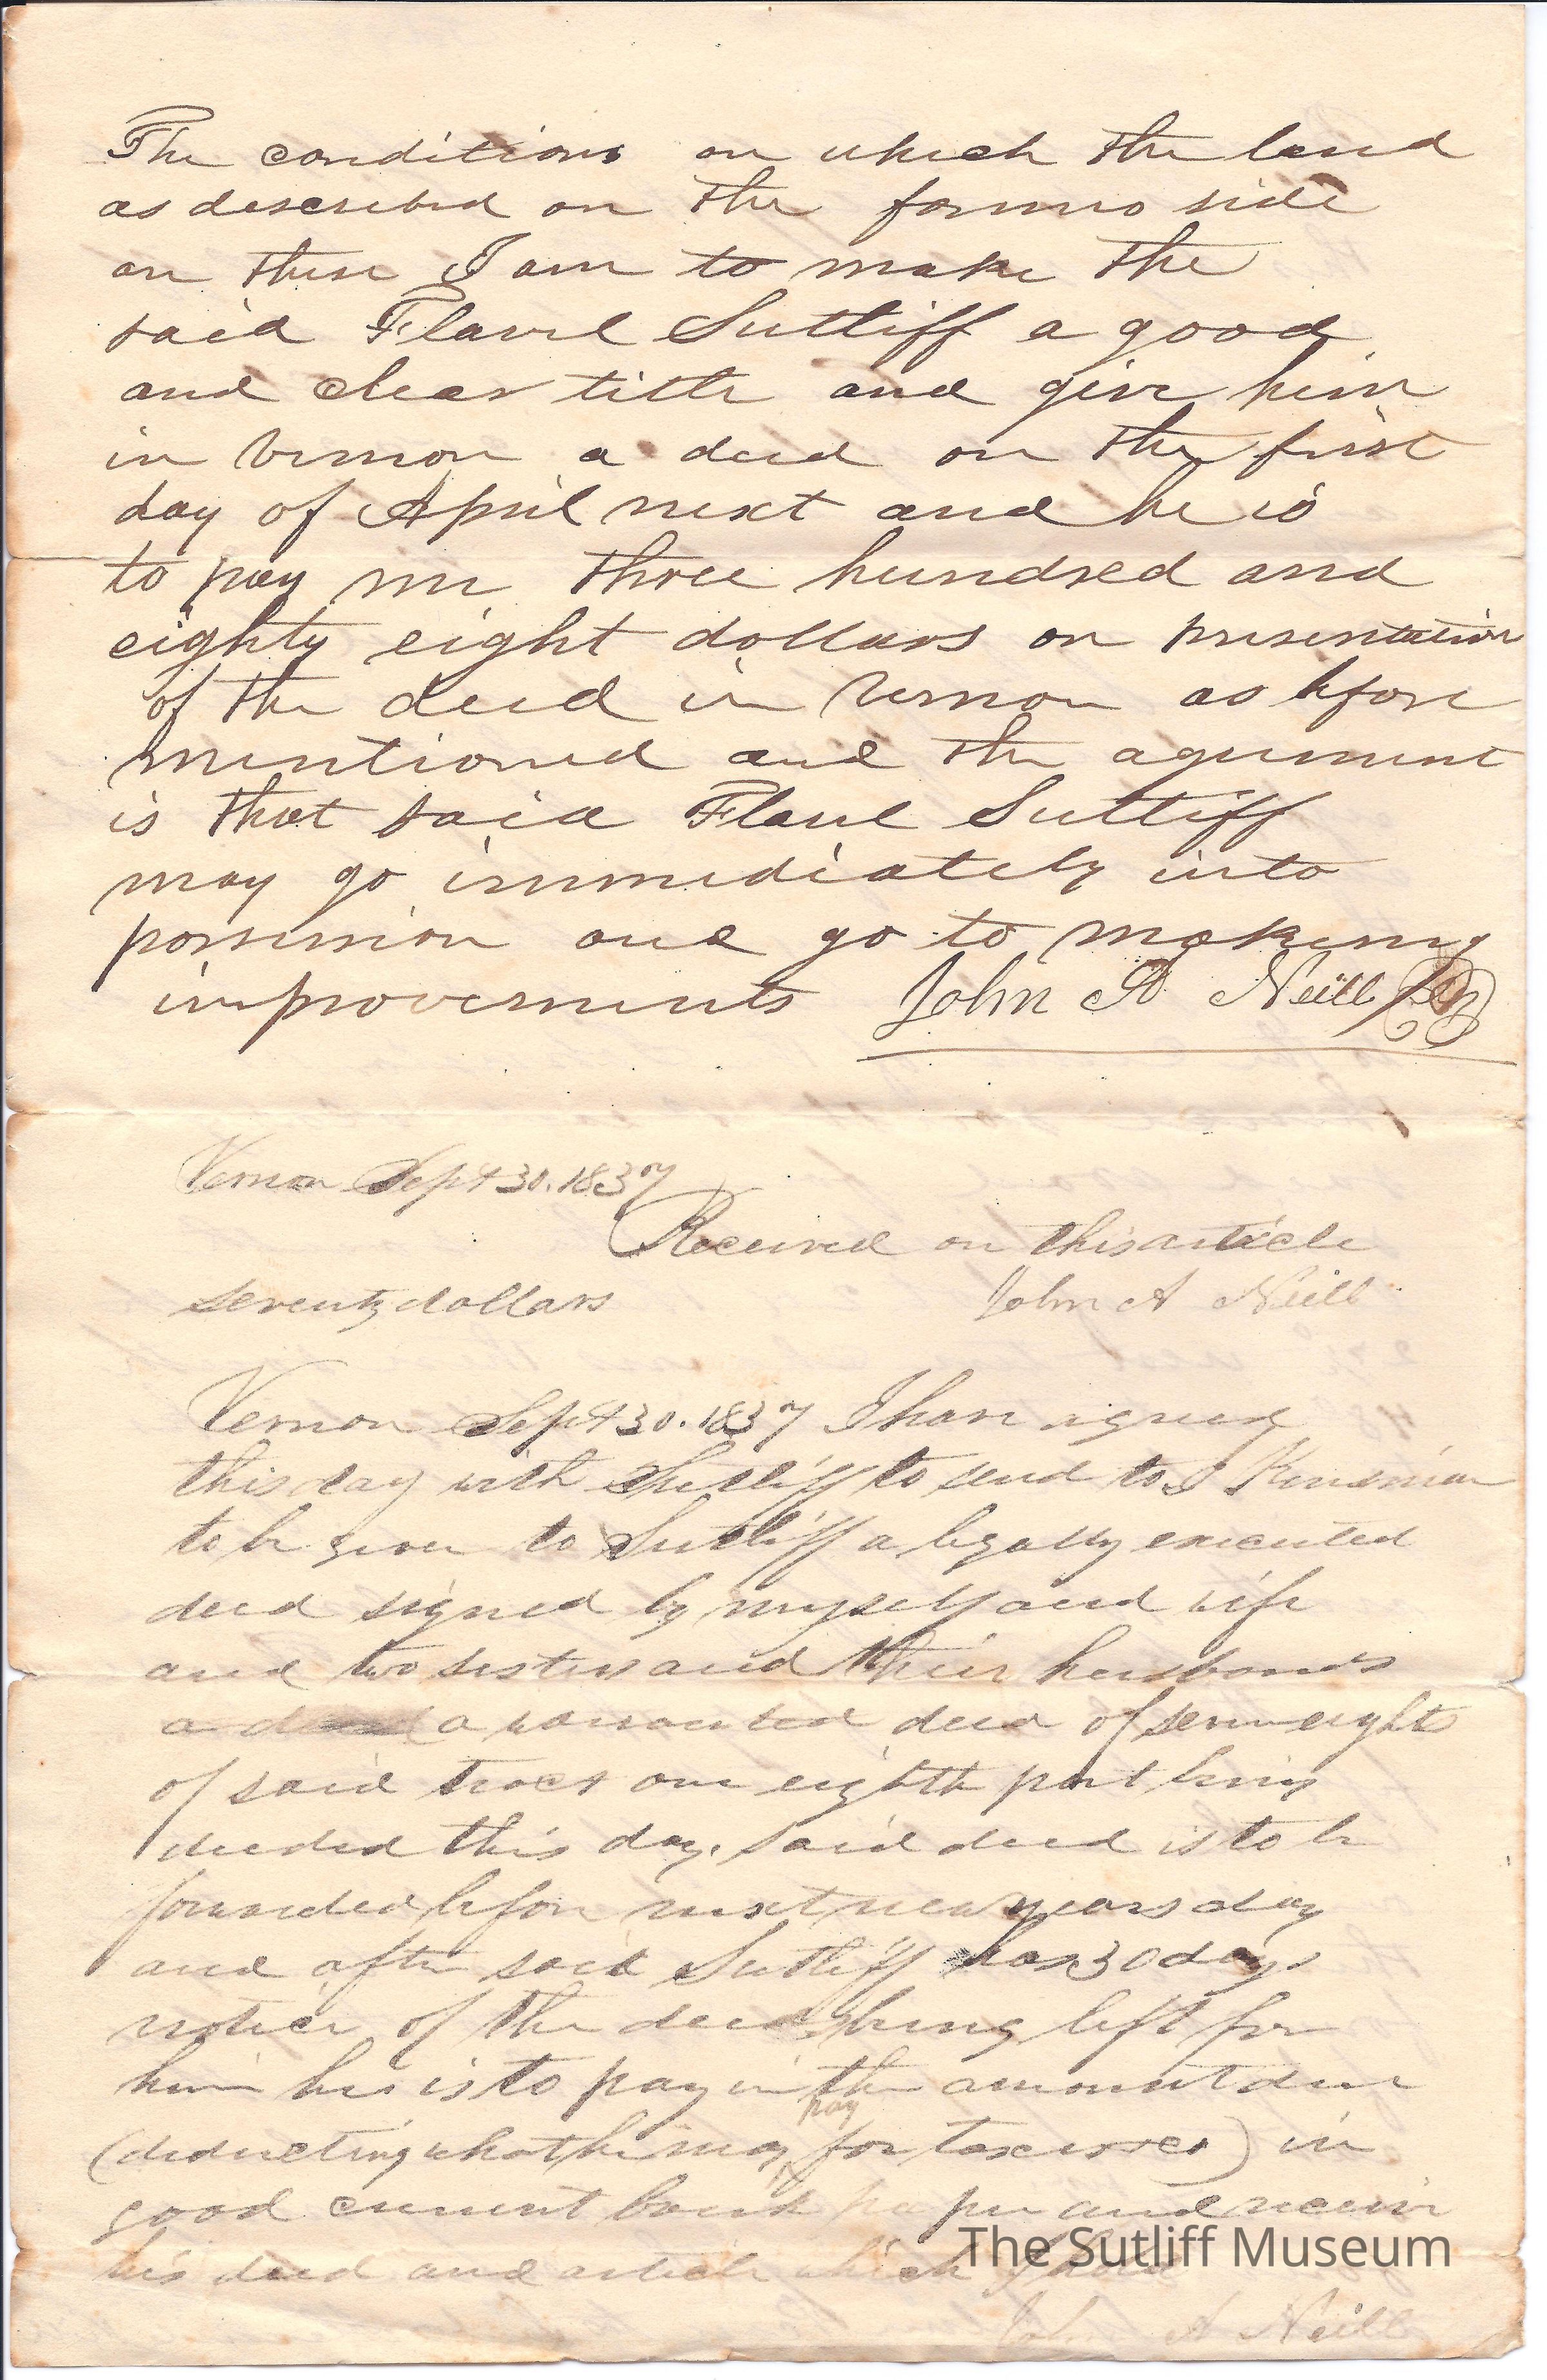 The conditions on which the land
as described on the former side
on these I am to make the
said Flavel Sutliff a good
and clear title and give him
in Vernon a deed on the first
day of April next and he is
to pay me three hundred and
eighty eight dollars on presentation
of the deed in Vernon as before
mentioned and the agreement
is that said Flavel Sutliff
may go immediately into
possession and go to making
improvements John A Neill
Vernon Sept 30. 1837
Received on this article
seventy dollars John A Neill
Vernon Sept 30. 1837 I have agreed
this day with Sutliff to send to Kinsman
to be given to Sutliff a legally executed
deed signed by myself and wife
and two sisters and their husbands
a warranted deed of seven eights
of said tract one eighth part being
deeded this day. Said deed is to be
forwarded before next new years day
and after said Sutliff has 30 days
notice of the deed being left for
him he is to pay in the amount due
(deducting what he may pay for taxes) in
good current bank paper and receive
his deed and article which I hold
John A Neill
The Sutliff Museum